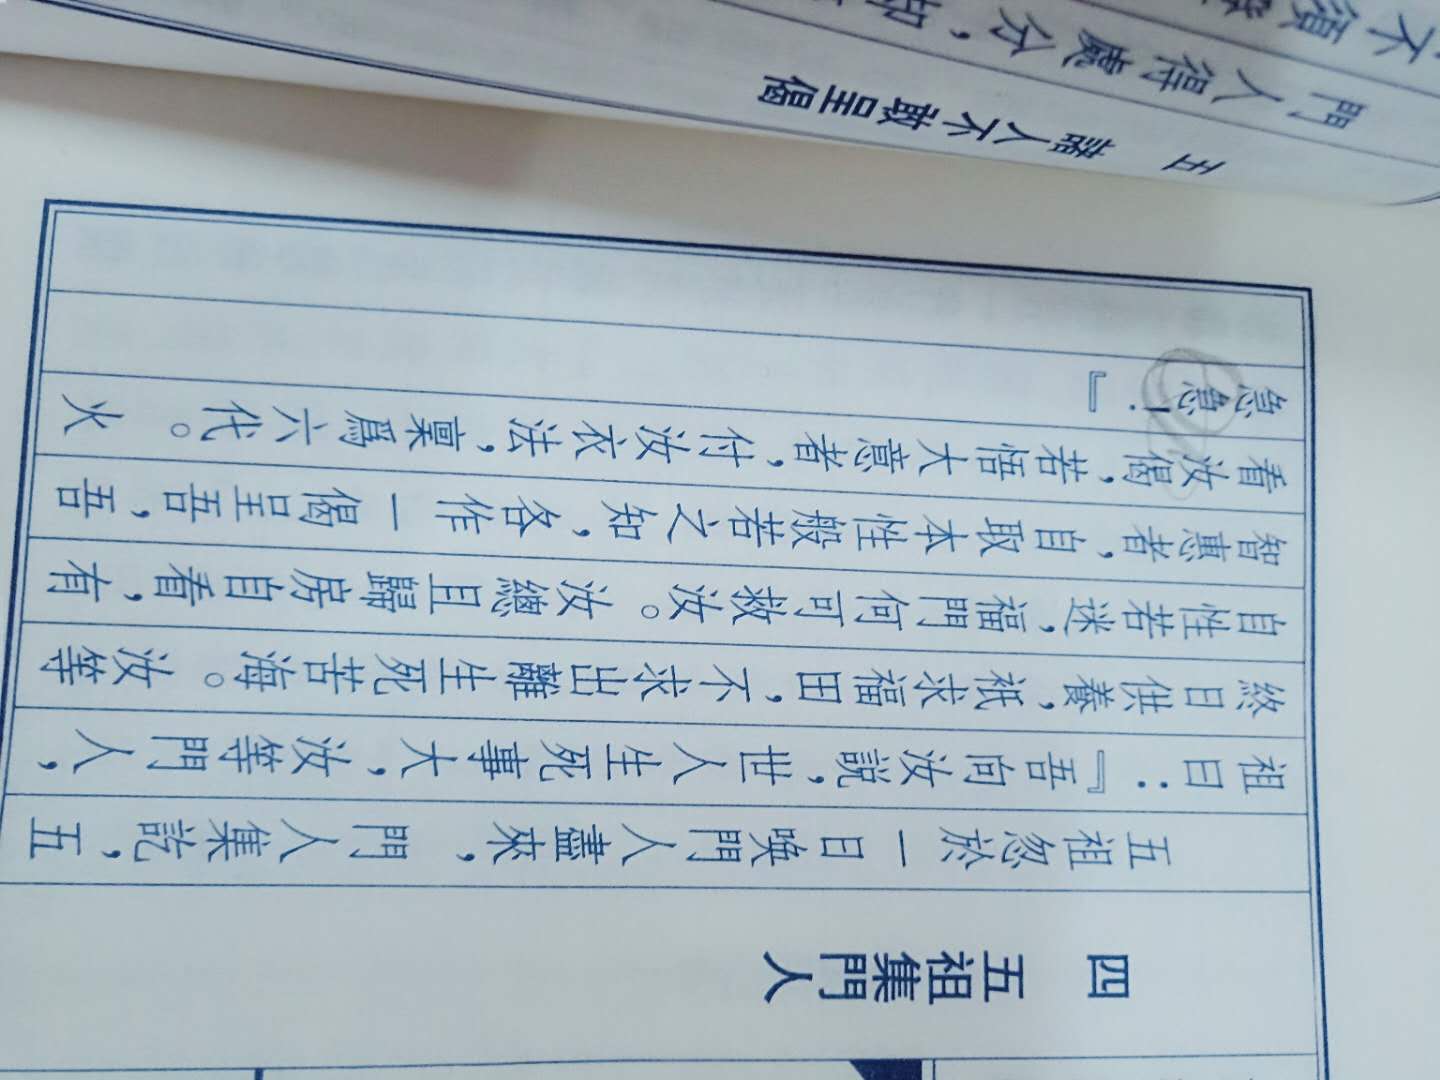 四　五祖集門人
五祖忽於一日喚門人盡來，門人集訖，五
祖曰：『吾向汝說，世人生死事大，汝等門人，
終日供養，祇求福田，不求出離生死苦海。汝等
自性若迷，福門何可救汝。汝總且歸房自看，有
智惠者，自取本性般若之知，各作一偈呈吾，吾
看汝偈，若悟大意者，付汝衣法，稟爲六代。火
急急！』
五　諸人不敢呈偈
門人得處分，却
不須